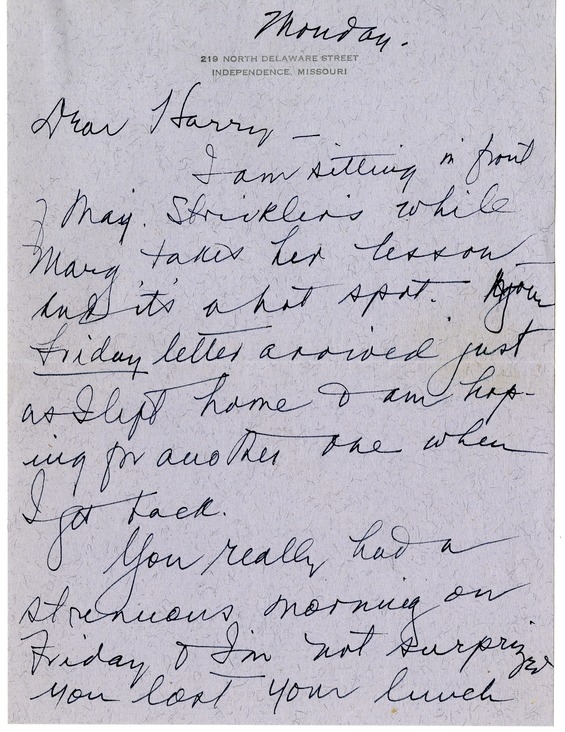 Monday.
219 NORTH DELAWARE STREET
INDEPENDENCE, MISSOURI
Dear Harry –
I am sitting in front
of Maj. Strickler's while
Marg takes her lesson –
and it's a hot spot. Your
Friday letter arrived just
as I left home & am hop-
ing for another one when
I get back.
You really had a
strenuous morning on
Friday & I'm not surprized
you lost your lunch